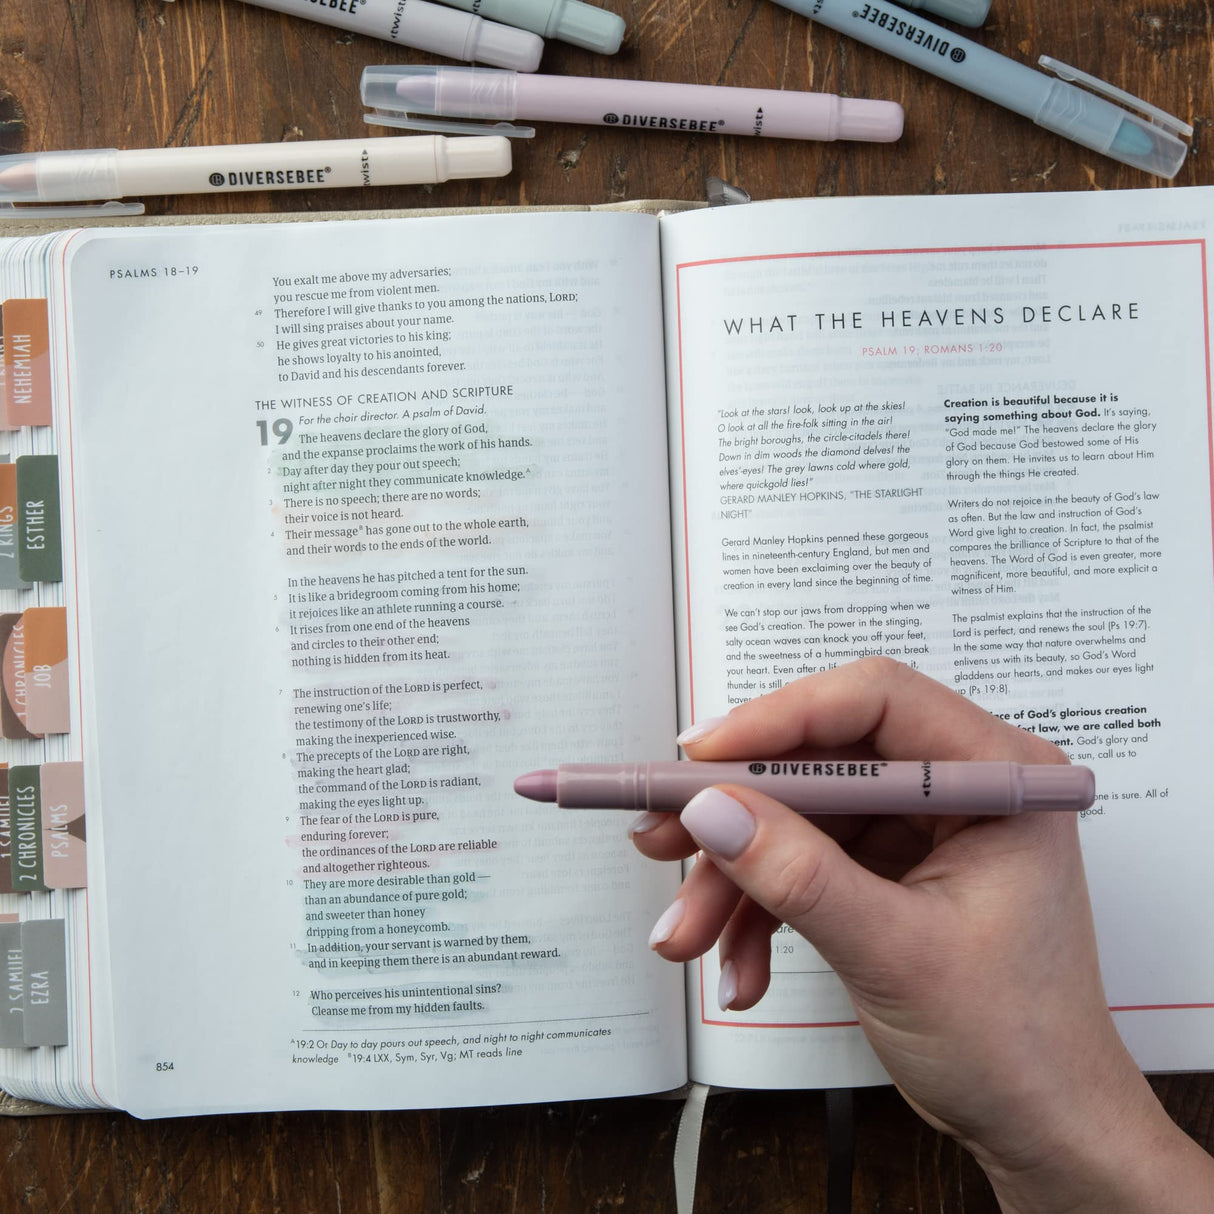 DIVERSEBEE
◂twist
DIVERSEBEE®
DIVERSEBEE®
twist▸
DIVERSEBEE®
twist▸
PSALMS 18–19
You exalt me above my adversaries;
you rescue me from violent men.
49 Therefore I will give thanks to you among the nations, LORD;
I will sing praises about your name.
50 He gives great victories to his king;
he shows loyalty to his anointed,
to David and his descendants forever.
THE WITNESS OF CREATION AND SCRIPTURE
For the choir director. A psalm of David.
19 The heavens declare the glory of God,
and the expanse proclaims the work of his hands.
2 Day after day they pour out speech;
night after night they communicate knowledge.A
3 There is no speech; there are no words;
their voice is not heard.
4 Their messageB has gone out to the whole earth,
and their words to the ends of the world.
In the heavens he has pitched a tent for the sun.
5 It is like a bridegroom coming from his home;
it rejoices like an athlete running a course.
6 It rises from one end of the heavens
and circles to their other end;
nothing is hidden from its heat.
7 The instruction of the LORD is perfect,
renewing one's life;
the testimony of the LORD is trustworthy,
making the inexperienced wise.
8 The precepts of the LORD are right,
making the heart glad;
the command of the LORD is radiant,
making the eyes light up.
9 The fear of the LORD is pure,
enduring forever;
the ordinances of the LORD are reliable
and altogether righteous.
10 They are more desirable than gold —
than an abundance of pure gold;
and sweeter than honey
dripping from a honeycomb.
11 In addition, your servant is warned by them,
and in keeping them there is an abundant reward.
12 Who perceives his unintentional sins?
Cleanse me from my hidden faults.
A19:2 Or Day to day pours out speech, and night to night communicates
knowledge B19:4 LXX, Sym, Syr, Vg; MT reads line
854
NEHEMIAH
2 KINGS
ESTHER
1 CHRONICLES
JOB
1 SAMUEL
2 CHRONICLES
PSALMS
2 SAMUEL
EZRA
WHAT THE HEAVENS DECLARE
PSALM 19; ROMANS 1:20
"Look at the stars! look, look up at the skies!
O look at all the fire-folk sitting in the air!
The bright boroughs, the circle-citadels there!
Down in dim woods the diamond delves! the
elves'-eyes! The grey lawns cold where gold,
where quickgold lies!"
GERARD MANLEY HOPKINS, "THE STARLIGHT
NIGHT"
Gerard Manley Hopkins penned these gorgeous
lines in nineteenth-century England, but men and
women have been exclaiming over the beauty of
creation in every land since the beginning of time.
We can't stop our jaws from dropping when we
see God's creation. The power in the stinging,
salty ocean waves can knock you off your feet,
and the sweetness of a hummingbird can break
your heart. Even after a it,
thunder is still
Creation is beautiful because it is
saying something about God. It's saying,
"God made me!" The heavens declare the glory
of God because God bestowed some of His
glory on them. He invites us to learn about Him
through the things He created.
Writers do not rejoice in the beauty of God's law
as often. But the law and instruction of God's
Word give light to creation. In fact, the psalmist
compares the brilliance of Scripture to that of the
heavens. The Word of God is even greater, more
magnificent, more beautiful, and more explicit a
witness of Him.
The psalmist explains that the instruction of the
Lord is perfect, and renews the soul (Ps 19:7).
In the same way that nature overwhelms and
enlivens us with its beauty, so God's Word
gladdens our hearts, and makes our eyes light
up (Ps 19:8).
of God's glorious creation
law, we are called both
God's glory and
sun, call us to
one is sure. All of
good.
1:20
DIVERSEBEE®
◂twis